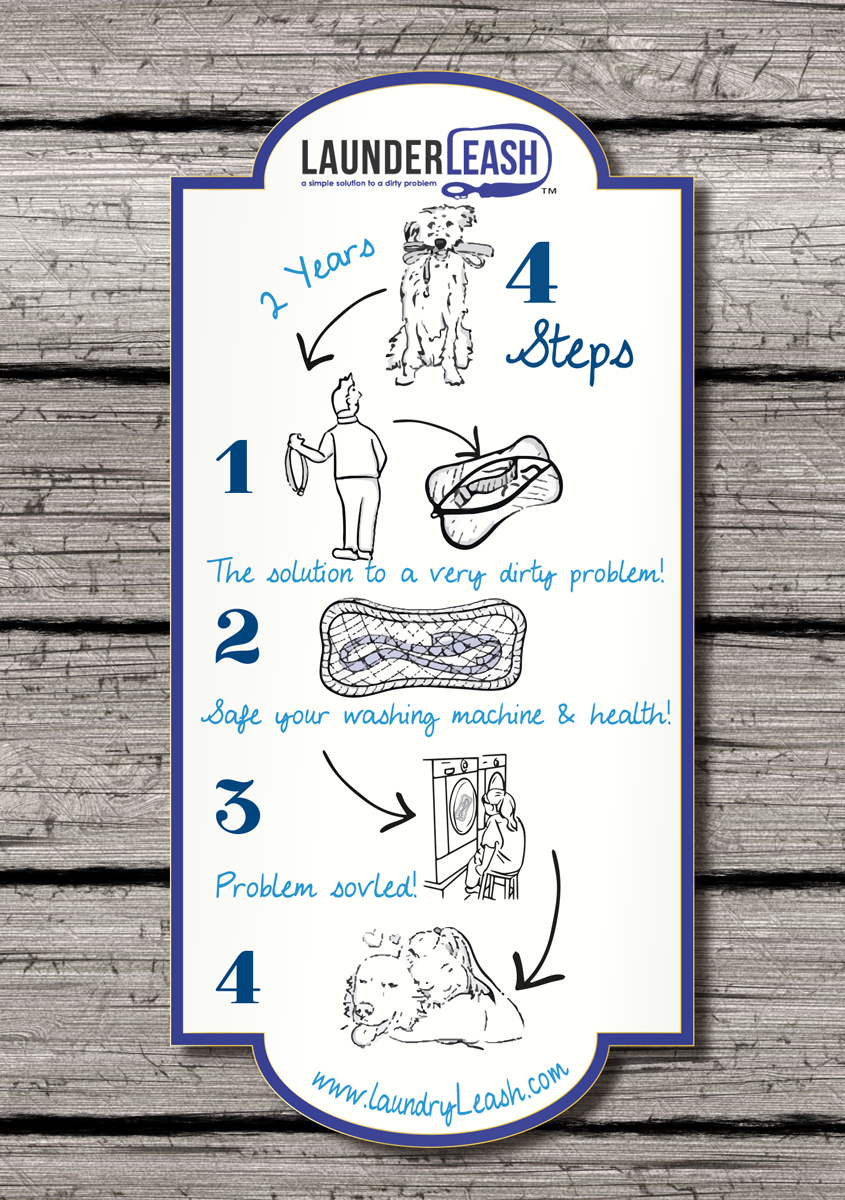 LAUNDERLEASH
a simple solution to a dirty problem
TM
2 Years
4
Steps
1
The solution to a very dirty problem!
2
Safe your washing machine & health!
3
Problem sovled!
4
www.laundryLeash.com